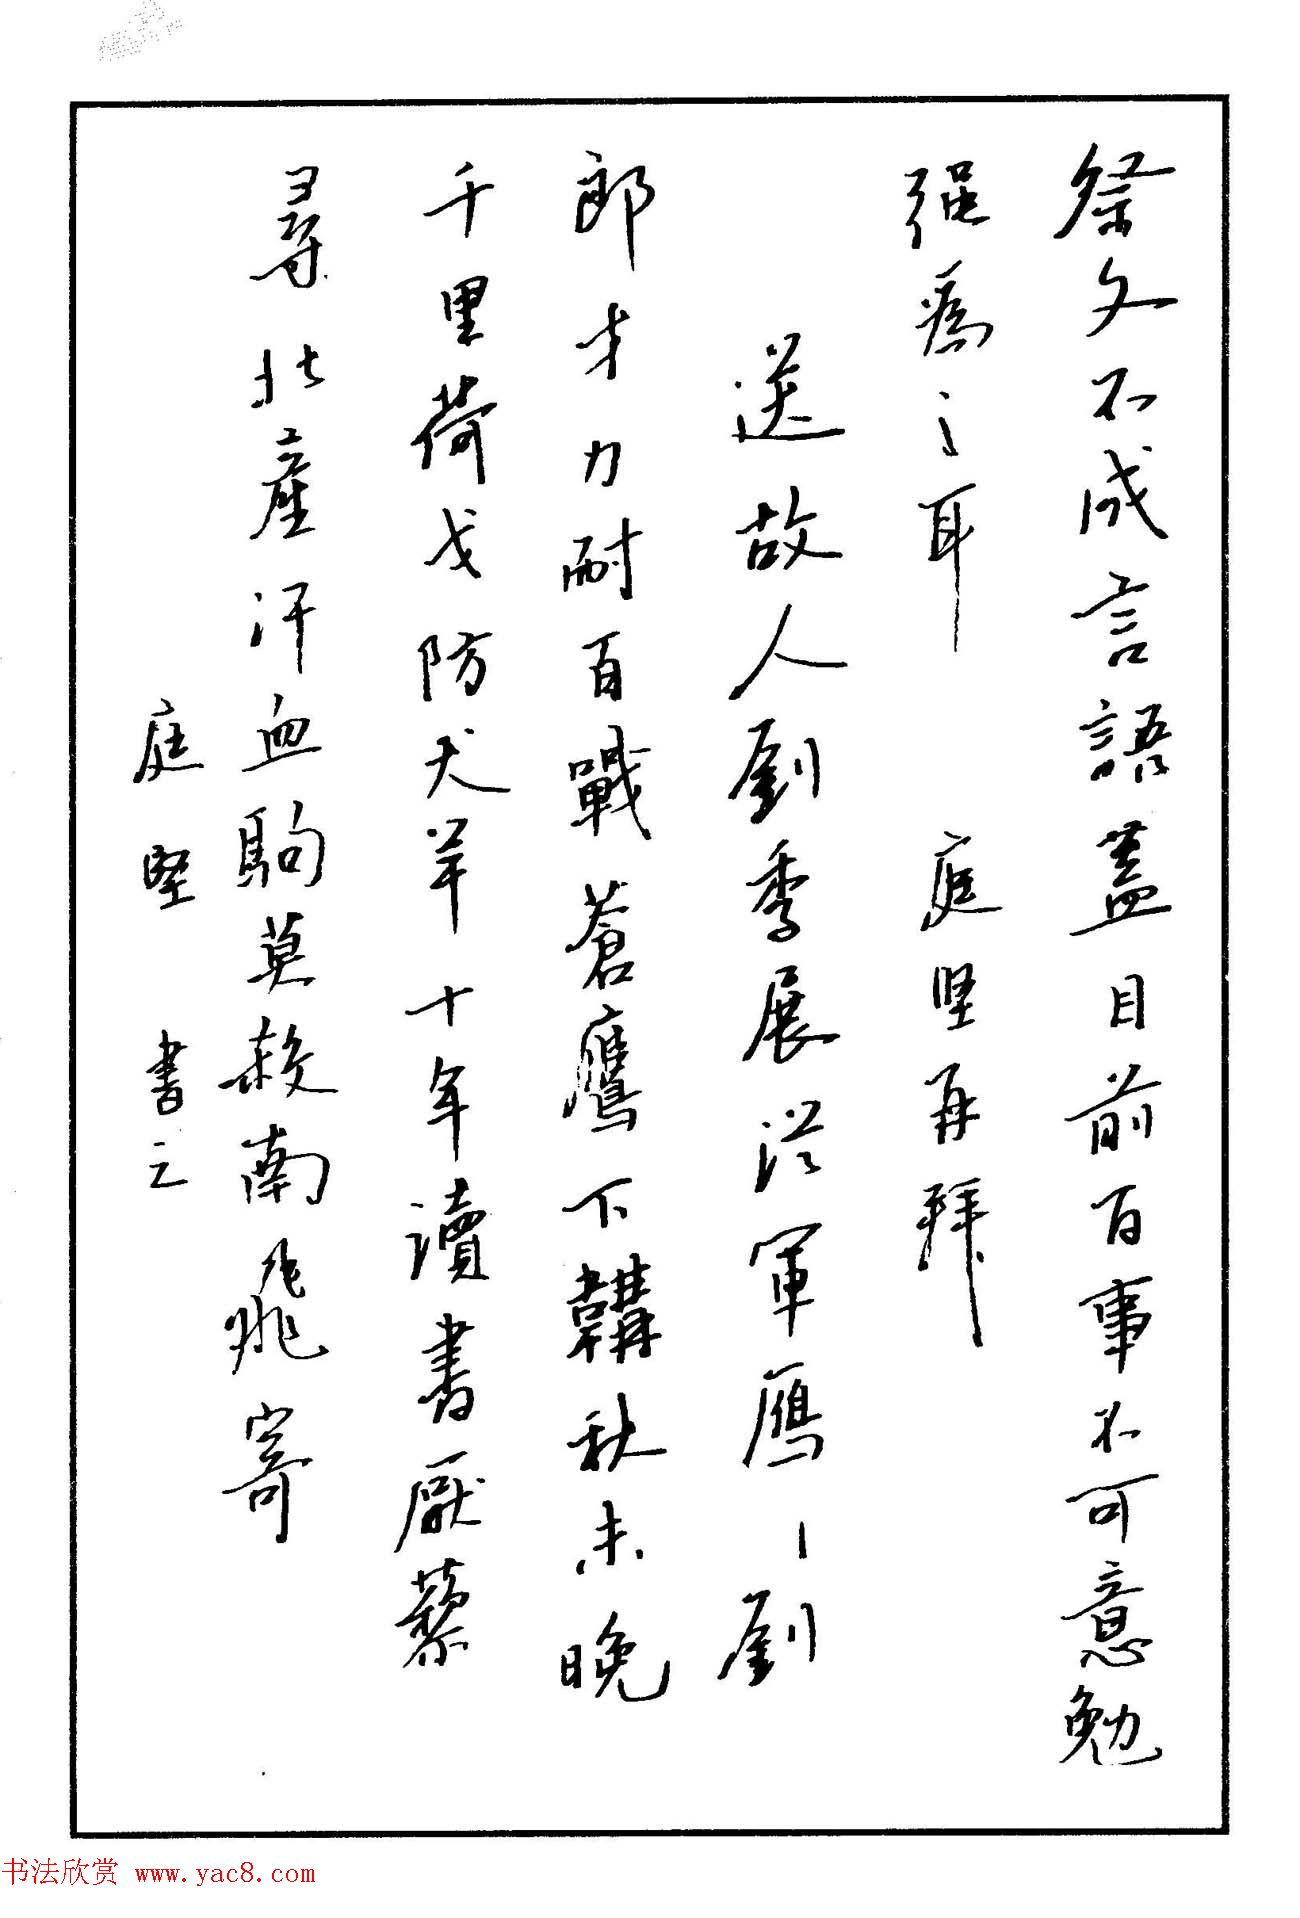 祭文不成言語蓋目前百事不可意勉
强為之耳 庭坚再拜
送故人劉季展從軍雁丶劉
郎才力耐百戰蒼鷹下韝秋未晚
千里荷戈防犬羊十年讀書厭藜
尋北産汗血駒莫殺南飛寄
庭堅 書之
书法欣赏 www.yac8.com